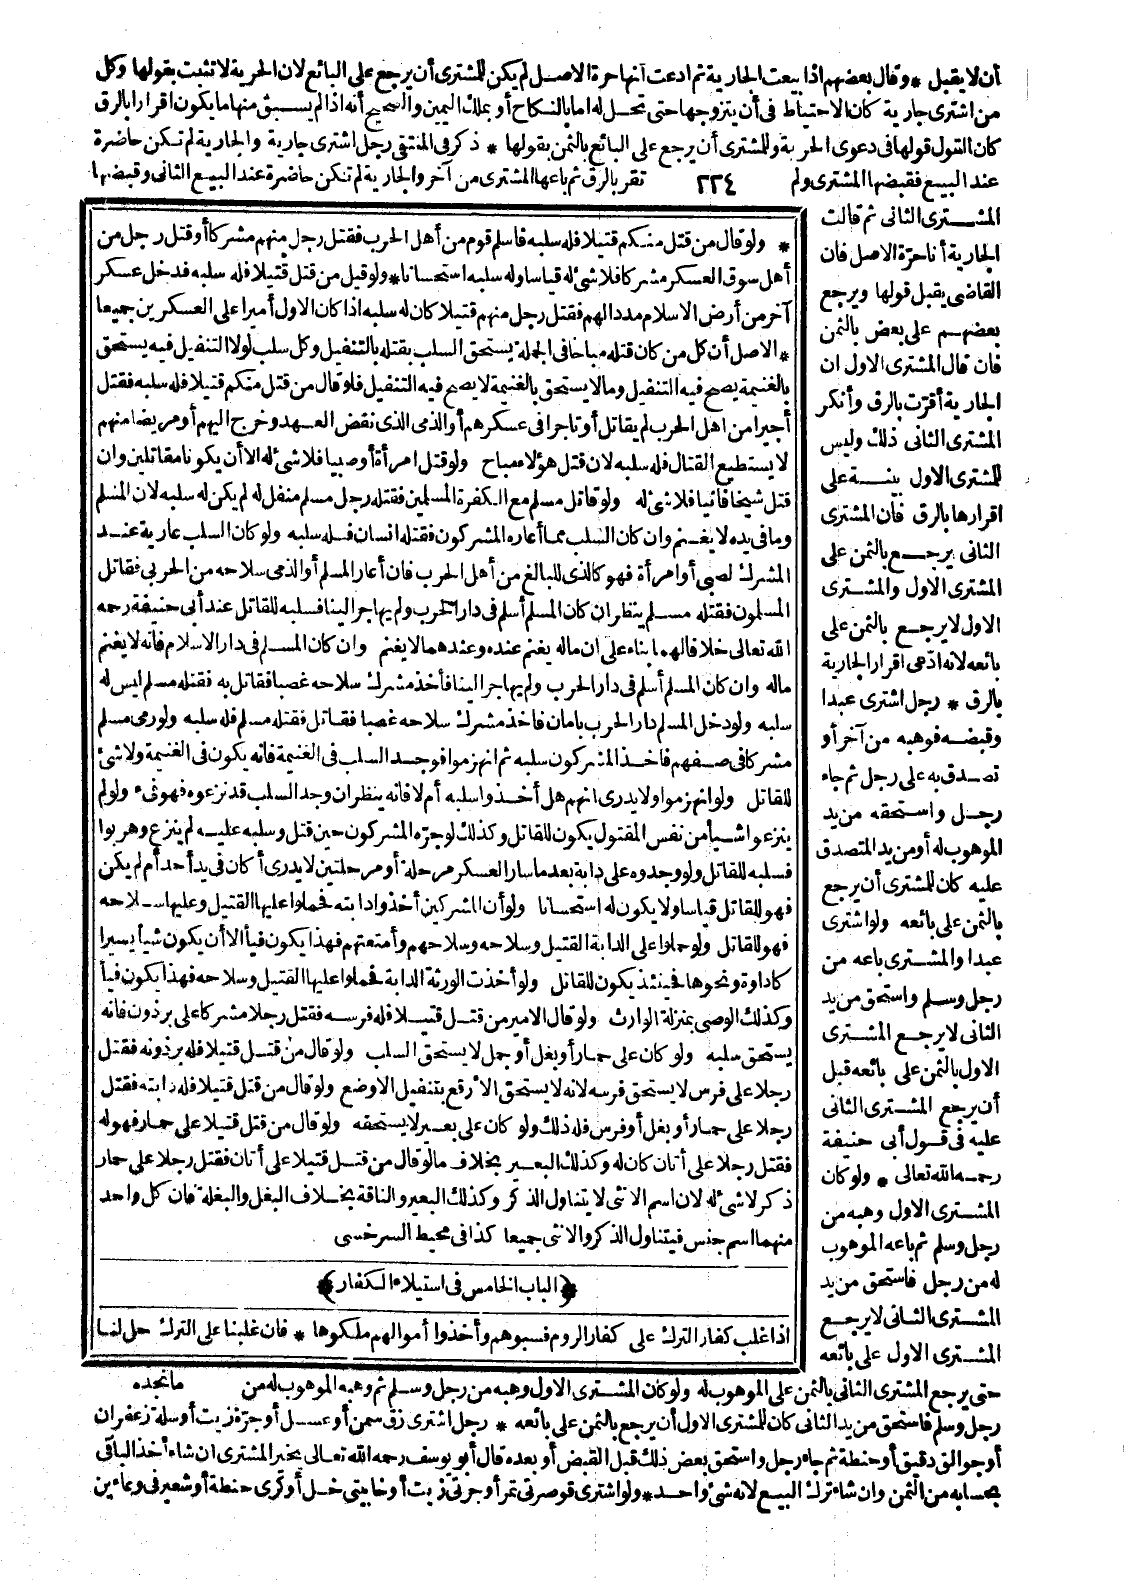 أن لا يقبل * وقال بعضهم اذا بيعت الجارية ثم ادعت أنها حرة الاصل لم يكن للمشترى أن يرجع على البائع لان الحرية لا تثبت بقولها وكل
من اشترى جارية كان الاحتياط فى أن يتزوجها حتى تحل له اما بالنكاح أو بملك اليمين والصحيح أنه اذا لم يسبق منها ما يكون اقرارا بالرق
كان القول قولها فى دعوى الحرية وللمشترى أن يرجع على البائع بالثمن بقولها * ذكر فى المنتقى رجل اشترى جارية والجارية لم تكن حاضرة
عند البيع فقبضها المشترى ولم ٢٢٤ تقر بالرق ثم باعها المشترى من آخر والجارية لم تكن حاضرة عند البيع الثانى وقبضها
المشترى الثانى ثم قالت
الجارية أنا حرة الاصل فان
القاضى يقبل قولها ويرجع
بعضهم على بعض بالثمن
فان قال المشترى الاول ان
الجارية أقرت بالرق وأنكر
المشترى الثانى ذلك وليس
للمشترى الاول بينة على
اقرارها بالرق فان المشترى
الثانى يرجع بالثمن على
المشترى الاول والمشترى
الاول لا يرجع بالثمن على
بائعه لانه ادعى اقرار الجارية
بالرق * رجل اشترى عبدا
وقبضه فوهبه من آخر أو
تصدق به على رجل ثم جاء
رجل واستحقه من يد
الموهوب له أو من يد المتصدق
عليه كان للمشترى أن يرجع
بالثمن على بائعه ولو اشترى
عبدا والمشترى باعه من
رجل وسلم واستحق من يد
الثانى لا يرجع المشترى
الاول بالثمن على بائعه قبل
أن يرجع المشترى الثانى
عليه فى قول أبى حنيفة
رحمه الله تعالى * ولو كان
المشترى الاول وهبه من
رجل وسلم ثم باعه الموهوب
له من رجل فاستحق من يد
المشترى الثانى لا يرجع
المشترى الاول على بائعه
* ولو قال من قتل منكم قتيلا فله سلبه فاسلم قوم من أهل الحرب فقتل رجل منهم مشركا أو قتل رجل من
أهل سوق العسكر مشركا فلا شئ له قياسا وله سلبه استحسانا * ولو قيل من قتل قتيلا فله سلبه فدخل عسكر
آخر من أرض الاسلام مددا لهم فقتل رجل منهم قتيلا كان له سلبه اذا كان الاول أميرا على العسكرين جميعا
* الاصل أن كل من كان قتله مباحا فى الجملة يستحق السلب بقتله بالتنفيل وكل سلب لولا التنفيل فيه يستحق
بالغنيمة يصح فيه التنفيل وما لا يستحق بالغنيمة لا يصح فيه التنفيل فلو قال من قتل منكم قتيلا فله سلبه فقتل
أجيرا من اهل الحرب لم يقاتل أو تاجرا فى عسكرهم أو الذمى الذى نقض العهد وخرج اليهم أو مريضا منهم
لا يستطيع القتال فله سلبه لان قتل هؤلاء مباح ولو قتل امرأة أو صبيا فلا شئ له الا أن يكونا مقاتلين وان
قتل شيخا فانيا فلا شئ له ولو قاتل مسلم مع الكفرة المسلمين فقتله رجل مسلم منفل له لم يكن له سلبه لان المسلم
وما فى يده لا يغنم وان كان السلب مما أعاره المشركون فقتله انسان فله سلبه ولو كان السلب عارية عند
المشرك لصبى أو امرأة فهو كالذى للبالغ من أهل الحرب فان أعار المسلم أو الذمى سلاحه من الحربى فقاتل
المسلمون فقتله مسلم ينظر ان كان المسلم أسلم فى دار الحرب ولم يهاجر الينا فسلبه للقاتل عند أبى حنيفة رحمه
الله تعالى خلافا لهما بناء على ان ماله يغنم عنده وعندهما لا يغنم وان كان المسلم فى دار الاسلام فانه لا يغنم
ماله وان كان المسلم أسلم فى دار الحرب ولم يهاجر الينا فأخذ مشرك سلاحه غصبا فقاتل به فقتله مسلم ليس له
سلبه ولو دخل المسلم دار الحرب بامان فاخذ مشرك سلاحه غصبا فقاتل فقتله مسلم فله سلبه ولو رمى مسلم
مشركا فى صفهم فاخذ المشركون سلبه ثم انهزموا فوجد السلب فى الغنيمة فانه يكون فى الغنيمة ولا شئ
للقاتل ولو انهزموا ولا يدرى انهم هل أخذوا سلبه أم لا فانه ينظر ان وجد السلب قد نزعوه فهو فىء ولو لم
ينزعوا شيأ من نفس المقتول يكون للقاتل وكذلك لو جره المشركون حين قتل وسلبه عليه لم ينزع وهربوا
فسلبه للقاتل ولو وجدوه على دابة بعد ما سار العسكر مرحلة أو مرحلتين لا يدرى أكان فى يد أحد أم لم يكن
فهو للقاتل قياسا ولا يكون له استحسانا ولو أن المشركين أخذوا دابته فحملوا عليها القتيل وعليها سلاحه
فهو للقاتل ولو حملوا على الدابة القتيل وسلاحه وسلاحهم وأمتعتهم فهذا يكون فيأ الا أن يكون شيأ يسيرا
كاداوة ونحوها فحينئذ يكون للقاتل ولو أخذت الورثة الدابة فحملوا عليها القتيل وسلاحه فهذا يكون فيأ
وكذلك الوصى بمنزلة الوارث ولو قال الامير من قتل قتيلا فله فرسه فقتل رجلا مشركا على برذون فانه
يستحق سلبه ولو كان على حمار أو بغل أو جمل لا يستحق السلب ولو قال من قتل قتيلا فله برذونه فقتل
رجلا على فرس لا يستحق فرسه لانه لا يستحق الارفع بتنفيل الاوضع ولو قال من قتل قتيلا فله دابته فقتل
رجلا على حمار أو بغل أو فرس فله ذلك ولو كان على بعير لا يستحقه ولو قال من قتل قتيلا على حمار فهو له
فقتل رجلا على أتان كان له وكذلك البعير بخلاف ما لو قال من قتل قتيلا على أتان فقتل رجلا على حمار
ذكر لا شئ له لان اسم الانثى لا يتناول الذكر وكذلك البعير والناقة بخلاف البغل والبغلة فان كل واحد
منهما اسم جنس فيتناول الذكر والانثى جميعا كذا فى محيط السرخسى
﴿الباب الخامس فى استيلاء الكفار﴾
اذا غلب كفار الترك على كفار الروم فسبوهم وأخذوا أموالهم ملكوها * فان غلبنا على الترك حل لنا
ما نجده
حتى يرجع المشترى الثانى بالثمن على الموهوب له ولو كان المشترى الاول وهبه من رجل وسلم ثم وهبه الموهوب له من
رجل وسلم فاستحق من يد الثانى كان للمشترى الاول أن يرجع بالثمن على بائعه * رجل اشترى زق سمن أو عسل أو جرة زيت أو سلة زعفران
أو جوالق دقيق أو حنطة ثم جاء رجل واستحق بعض ذلك قبل القبض أو بعده قال أبو يوسف رحمه الله تعالى يخير المشترى ان شاء أخذ الباقى
بحسابه من الثمن وان شاء ترك البيع لانه شئ واحد * ولو اشترى قوصرتى تمر أو جرتى زيت أو خابيتى خل أو كرى حنطة أو شعير فى وعاءين